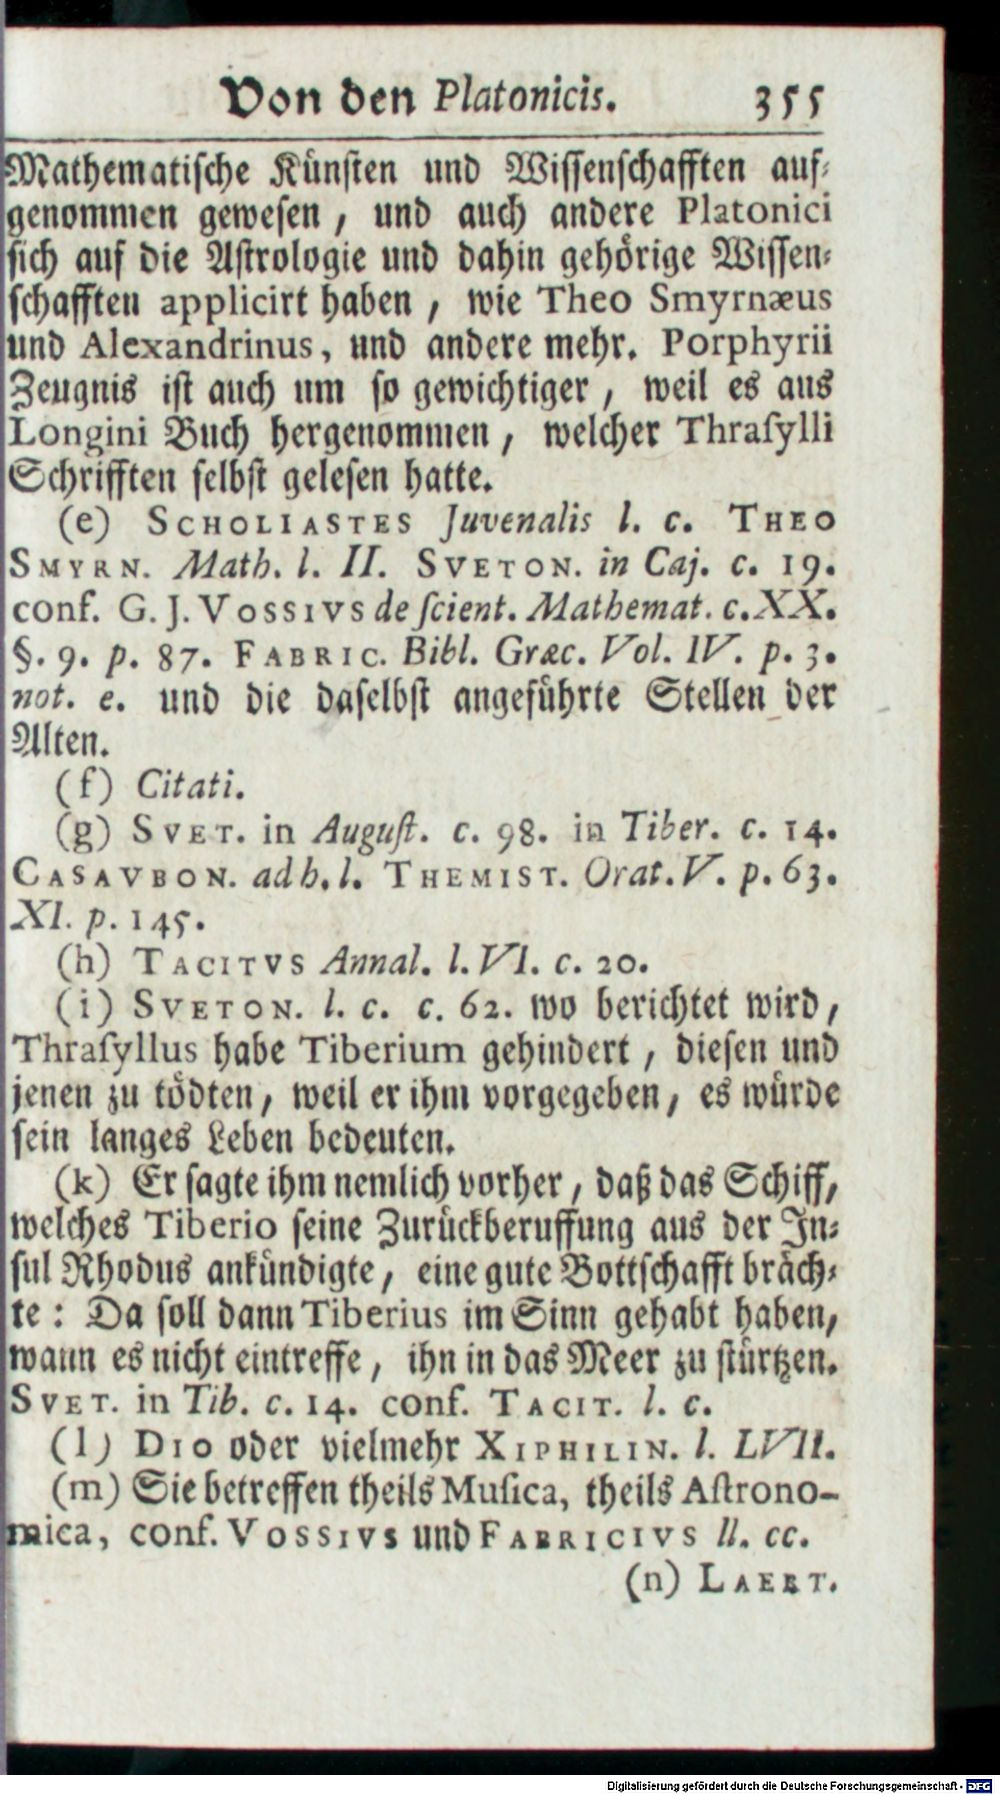 Von den Platonicis. 355
Mathematische Künsten und Wissenschafften auf-
genommen gewesen, und auch andere Platonici
sich auf die Astrologie und dahin gehörige Wissen-
schafften applicirt haben, wie Theo Smyrnæus
und Alexandrinus, und andere mehr. Porphyrii
Zeugnis ist auch um so gewichtiger, weil es aus
Longini Buch hergenommen, welcher Thraſylli
Schrifften selbst gelesen hatte.
(e) SCHOLIASTES Juvenalis l. c. THEO
SMYRN. Math. l. II. SVETON. in Caj. c. 19.
conf. G. J. VOSSIVS de ſcient. Mathemat. c. XX.
§. 9. p. 87. FABRIC. Bibl. Græc. Vol. IV. p. 3.
not. e. und die daselbst angeführte Stellen der
Alten.
(f) Citati.
(g) SVET. in Auguſt. c. 98. in Tiber. c. 14.
CASAVBON. ad h. l. THEMIST. Orat. V. p. 63.
XI. p. 145.
(h) TACITVS Annal. l. VI. c. 20.
(i) SVETON. l. c. c. 62. wo berichtet wird,
Thraſyllus habe Tiberium gehindert, diesen und
jenen zu tödten, weil er ihm vorgegeben, es würde
sein langes Leben bedeuten.
(k) Er sagte ihm nemlich vorher, daß das Schiff,
welches Tiberio seine Zurückberuffung aus der In-
sul Rhodus ankündigte, eine gute Bottschafft bräch-
te: Da soll dann Tiberius im Sinn gehabt haben,
wann es nicht eintreffe, ihn in das Meer zu stürtzen.
SVET. in Tib. c. 14. conf. TACIT. l. c.
(l) DIO oder vielmehr XIPHILIN. l. LVII.
(m) Sie betreffen theils Muſica, theils Aſtrono-
mica, conf. VOSSIVS und FABRICIVS ll. cc.
(n) LAERT.
Digitalisierung gefördert durch die Deutsche Forschungsgemeinschaft - DFG